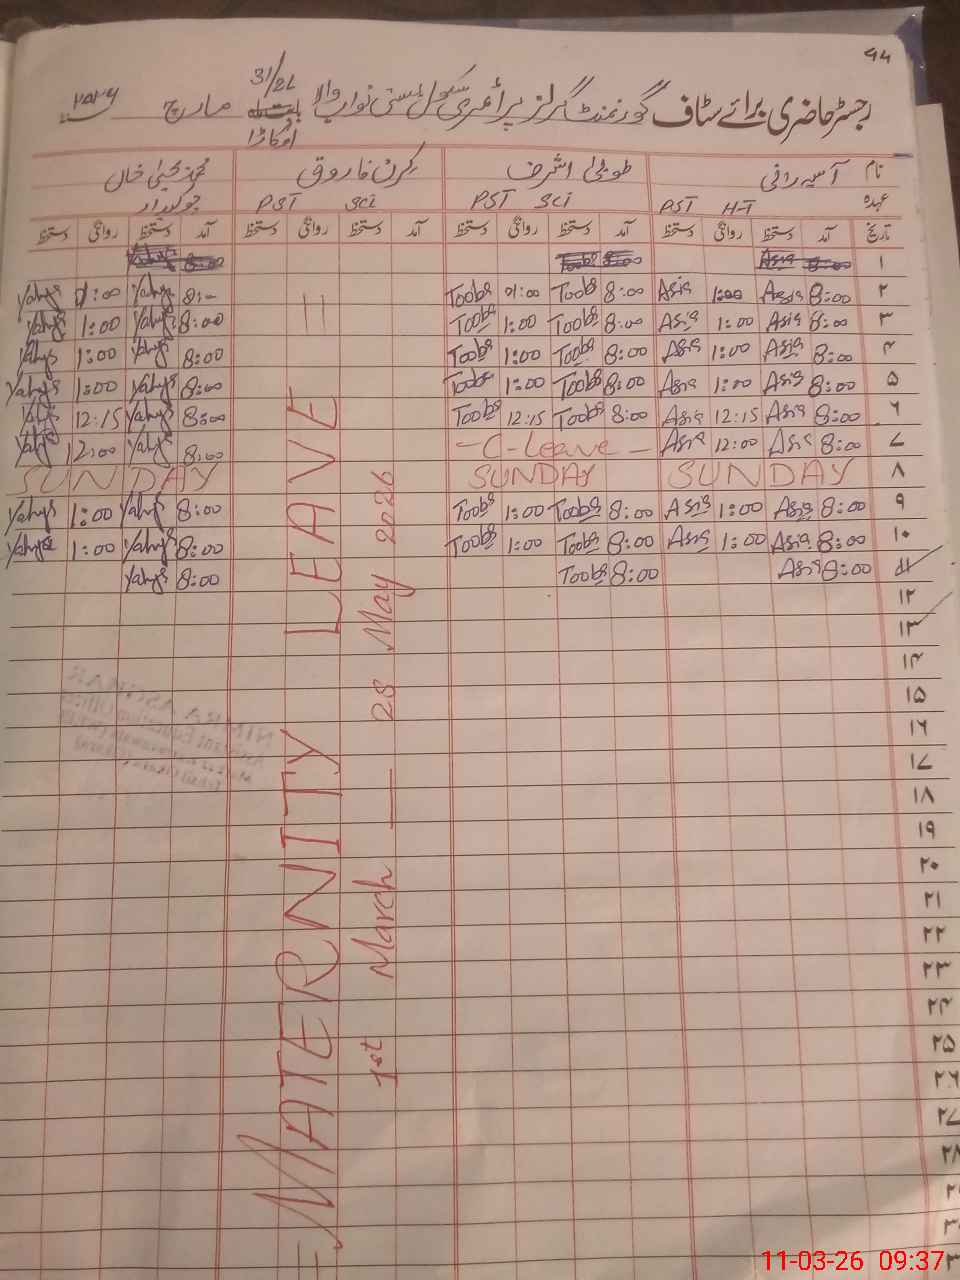 94
رجسٹر حاضری برائے سٹاف گورنمنٹ گرلز پرائمری سکول بستی نواب والا 31/2L اوکاڑا بابت ماہ مارچ ۲۰۲۶
نام آسیہ رانی طوبیٰ اشرف کرن فاروق محمد یحییٰ خان
عہدہ PST H-T PST Sci PST Sci چوکیدار
تاریخ آمد دستخط روانگی دستخط آمد دستخط روانگی دستخط آمد دستخط روانگی دستخط آمد دستخط روانگی دستخط
۱ 8:00 Asia 8:00 Tooba 8:00 Yahya
۲ 8:00 Asia 1:00 Asia 8:00 Tooba 01:00 Tooba 8:- Yahya 01:00 Yahya
۳ 8:00 Asia 1:00 Asia 8:00 Tooba 1:00 Tooba 8:00 Yahya 1:00 Yahya
۴ 8:00 Asia 1:00 Asia 8:00 Tooba 1:00 Tooba 8:00 Yahya 1:00 Yahya
۵ 8:00 Asia 1:00 Asia 8:00 Tooba 1:00 Tooba 8:00 Yahya 1:00 Yahya
۶ 8:00 Asia 12:15 Asia 8:00 Tooba 12:15 Tooba 8:00 Yahya 12:15 Yahya
۷ 8:00 Asia 12:00 Asia - C-Leave - 8:00 Yahya 12:00 Yahya
۸ SUNDAY SUNDAY SUNDAY
۹ 8:00 Asia 1:00 Asia 8:00 Tooba 1:00 Tooba 8:00 Yahya 1:00 Yahya
۱۰ 8:00 Asia 1:00 Asia 8:00 Tooba 1:00 Tooba 8:00 Yahya 1:00 Yahya
۱۱ 8:00 Asia 8:00 Tooba 8:00 Yahya
۱۲
۱۳
۱۴
۱۵
۱۶
۱۷
۱۸
۱۹
۲۰
۲۱
۲۲
۲۳
۲۴
۲۵
۲۶
۲۷
۲۸
= MATERNITY LEAVE =
1st March — 28 May 2026
11-03-26 09:37